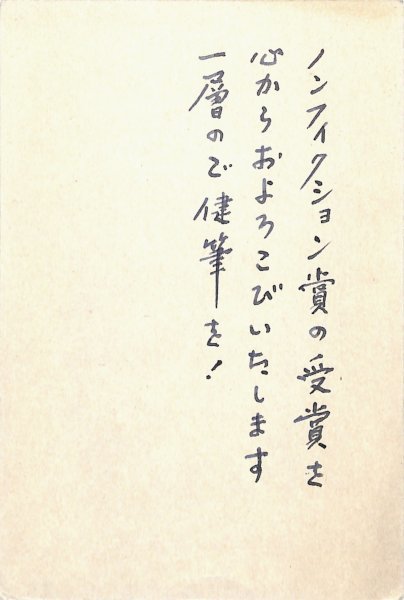 ノンフィクション賞の受賞を
心からおよろこびいたします
一層のご健筆を!